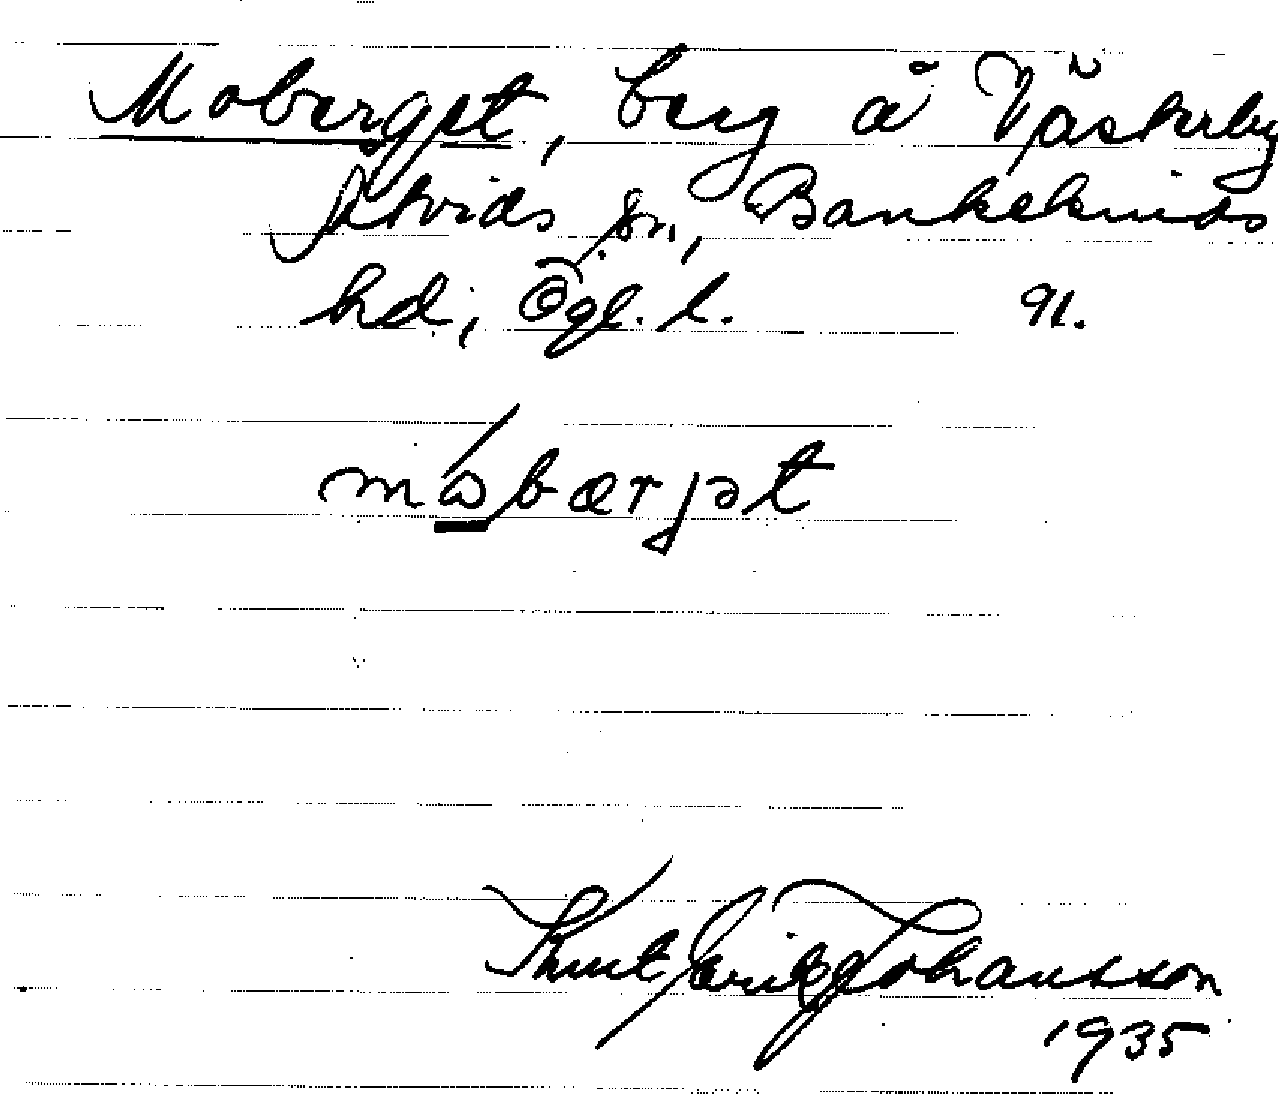 Moberget, berg å Västerby
Åtvids sn, Bankekinds
hd, Ögl. l. 91.
mωbærjət
Knut Erik Johansson
1935